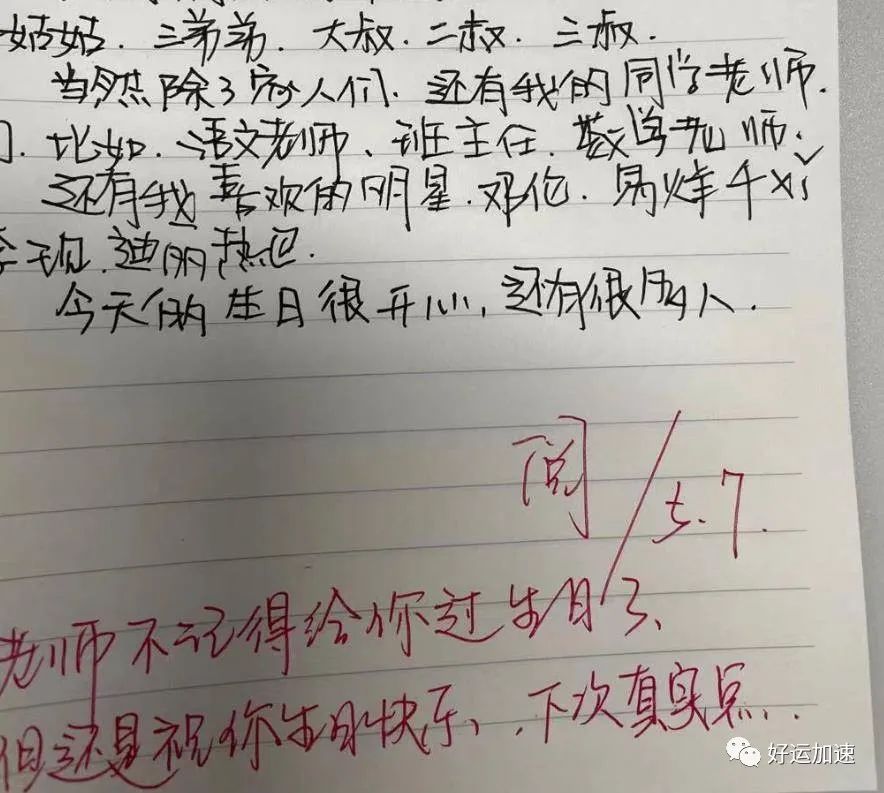 姑姑.三弟弟.大叔.二叔.三叔.
当然除了家人们.还有我的同学老师.
比如.语文老师、班主任.数学老师.
还有我喜欢的明星.邓伦.易烊千玺
李现.迪丽热巴.
今天的生日很开心,还有很多人.
阅/5.7.
老师不记得给你过生日了、
但还是祝你生日快乐、.下次真实点..
好运加速